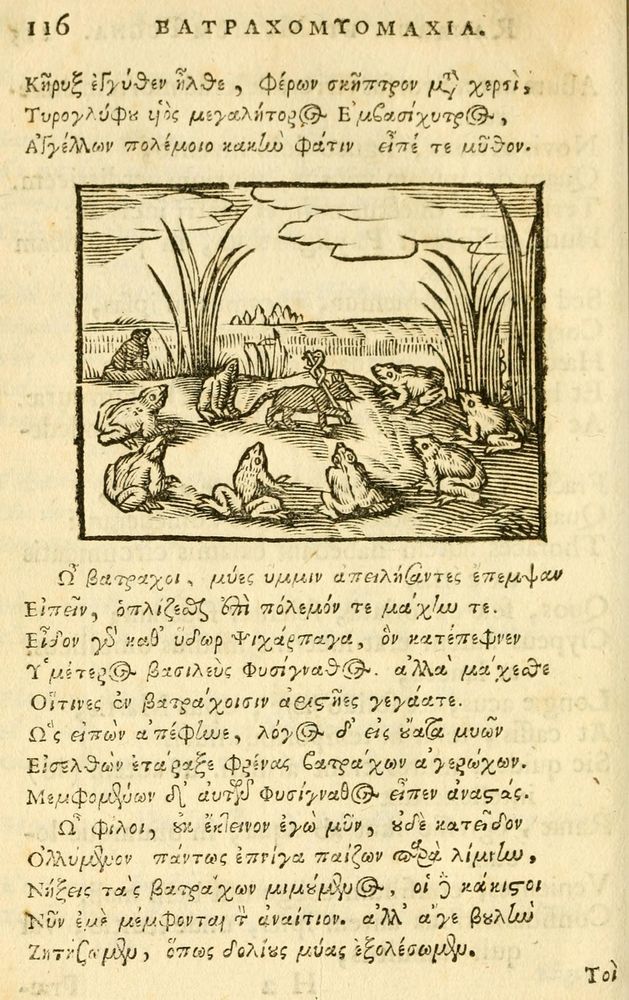 116 ΒΑΤΡΑΧΟΜΥΟΜΑΧΙΑ.
Κῆρυξ ἐγγύθεν ἦλθε, φέρων σκῆπτρον μετὰ χερσὶ,
Τυρογλύφου υἱὸς μεγαλήτορος Ἐμβασίχυτρος,
Ἀγγέλλων πολέμοιο κακὴν φάτιν εἶπέ τε μῦθον.
Ὦ βατραχοι, μύες ὔμμιν ἀπειλήσαντες ἔπεμψαν
Εἰπεῖν, ὁπλίζεσθαι ἐπὶ πόλεμόν τε μάχην τε.
Εἶδον γὰρ καθ' ὕδωρ Ψιχάρπαγα, ὃν κατέπεφνεν
Ὑμέτερος βασιλεὺς Φυσίγναθος. ἀλλὰ μάχεσθε
Οἵτινες ἐν βατράχοισιν ἀριστῆες γεγάατε.
Ὣς εἰπὼν ἀπέφηνε, λόγος δ' εἰς οὔατα μυῶν
Εἰσελθὼν ἐτάραξε φρένας βατράχων ἀγερώχων.
Μεμφομένων δ' αὐτῶν Φυσίγναθος εἶπεν ἀναστάς.
Ὦ φίλοι, οὐκ ἔκτεινον ἐγὼ μῦν, οὐδὲ κατεῖδον
Ὀλλύμενον πάντως ἐπνίγη παίζων παρὰ λίμνην,
Νήξεις τὰς βατράχων μιμούμενος, οἱ δὲ κάκιστοι
Νῦν ἐμὲ μέμφονται τὸν ἀναίτιον. ἀλλ' ἄγε βουλὴν
Ζητήσωμεν, ὅπως δολίους μύας ἐξολέσωμεν.
Τοὶ